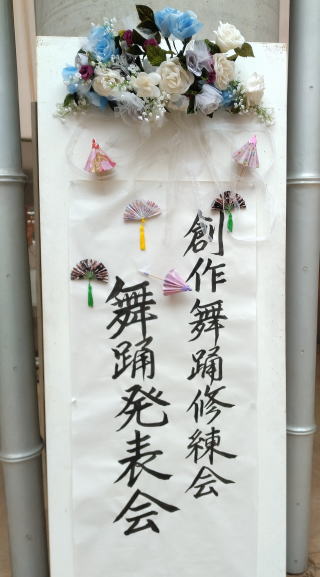 創作舞踊修練会
舞踊発表会